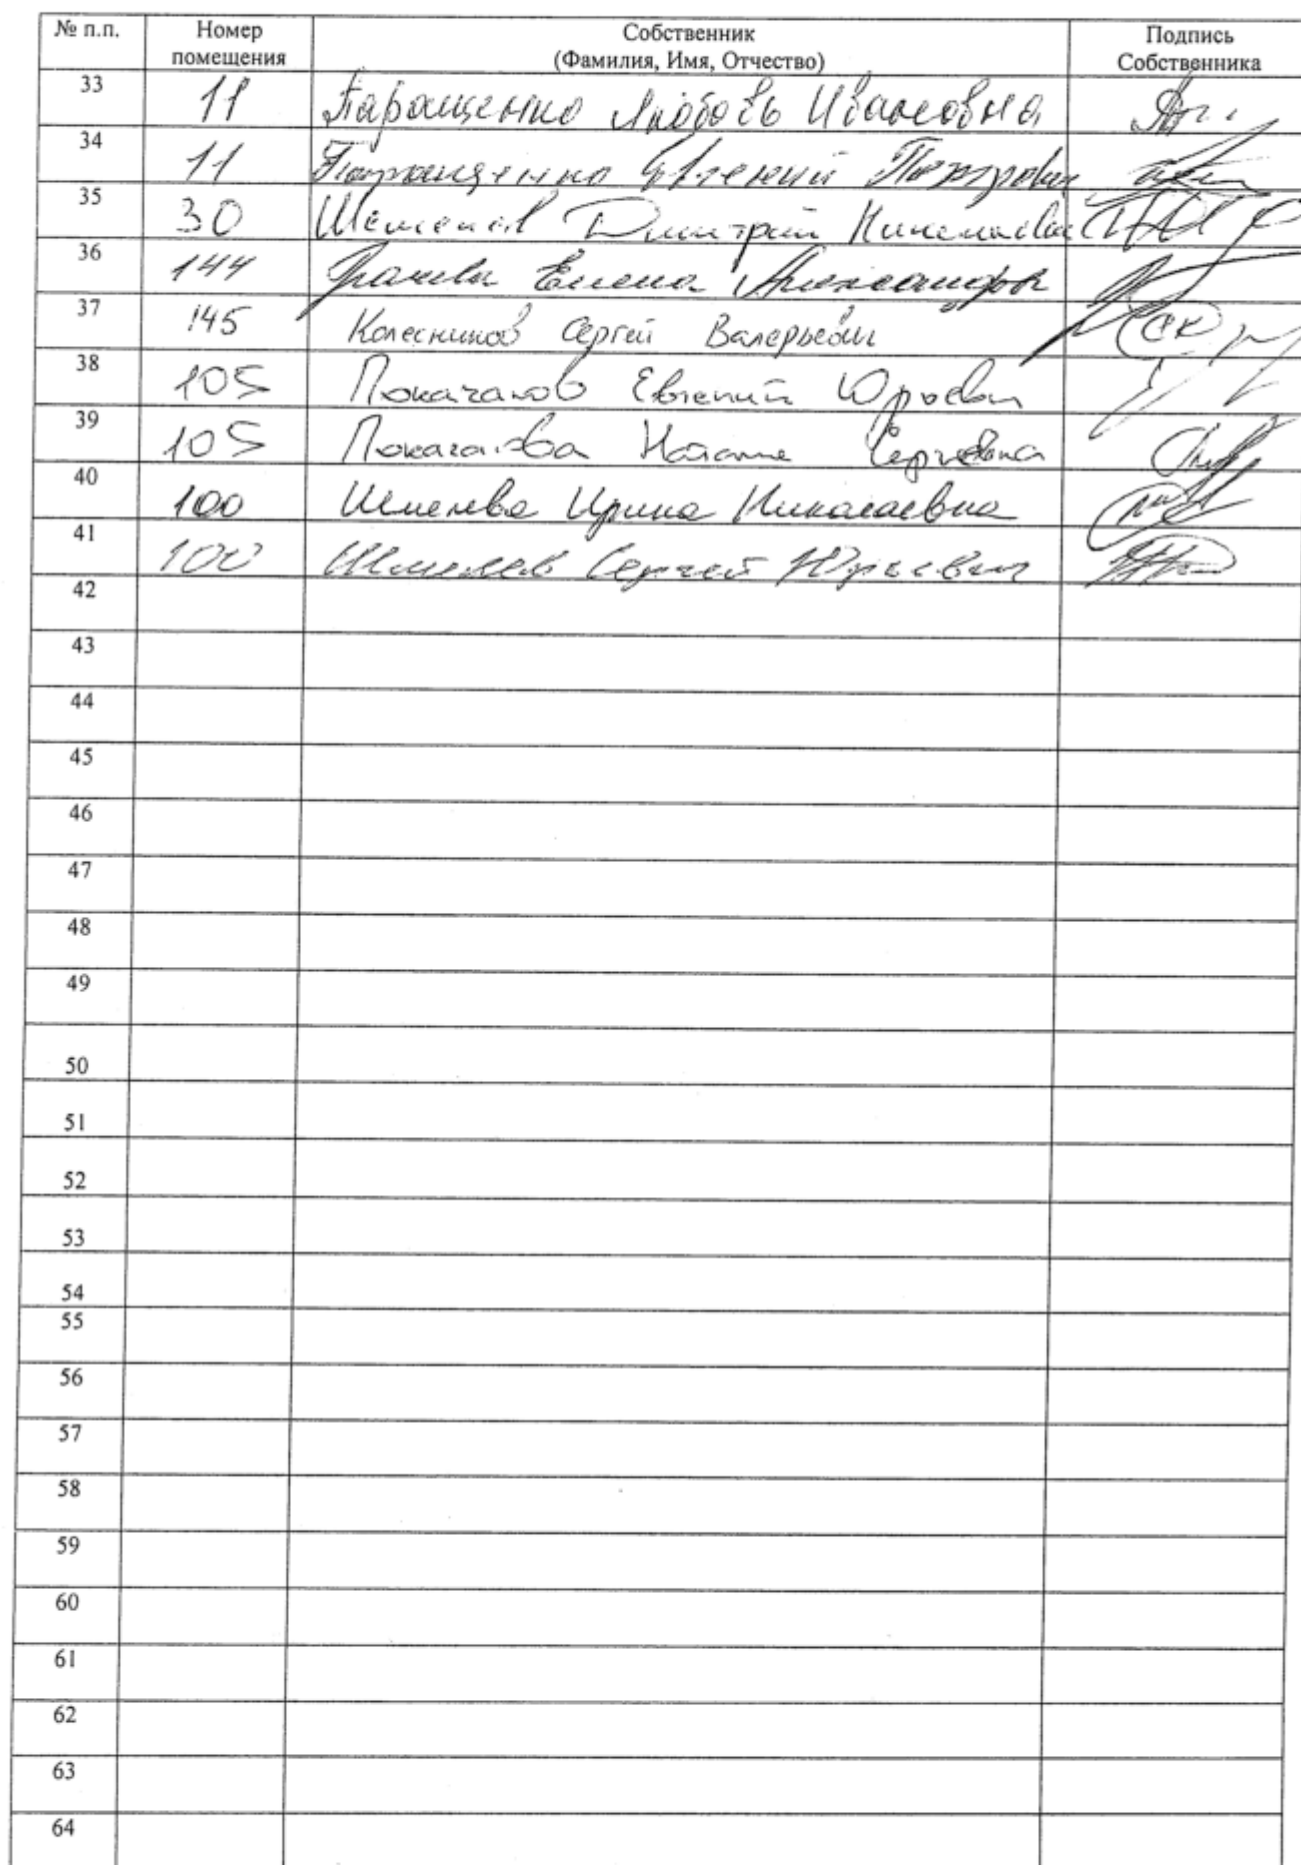 № п.п. Номер помещения Собственник (Фамилия, Имя, Отчество) Подпись Собственника
33 11 Паращенко Любовь Ивановна
34 11 Паращенко Евгений Петрович
35 30 Дмитрий Николаевич
36 144 Елена Александр
37 145 Колесников Сергей Валерьевич
38 105 Покачалов Евгений Юрьевич
39 105 Покачалова Наталия Сергеевна
40 100 Шмелева Ирина Николаевна
41 100 Шмелев Сергей Юрьевич
42
43
44
45
46
47
48
49
50
51
52
53
54
55
56
57
58
59
60
61
62
63
64